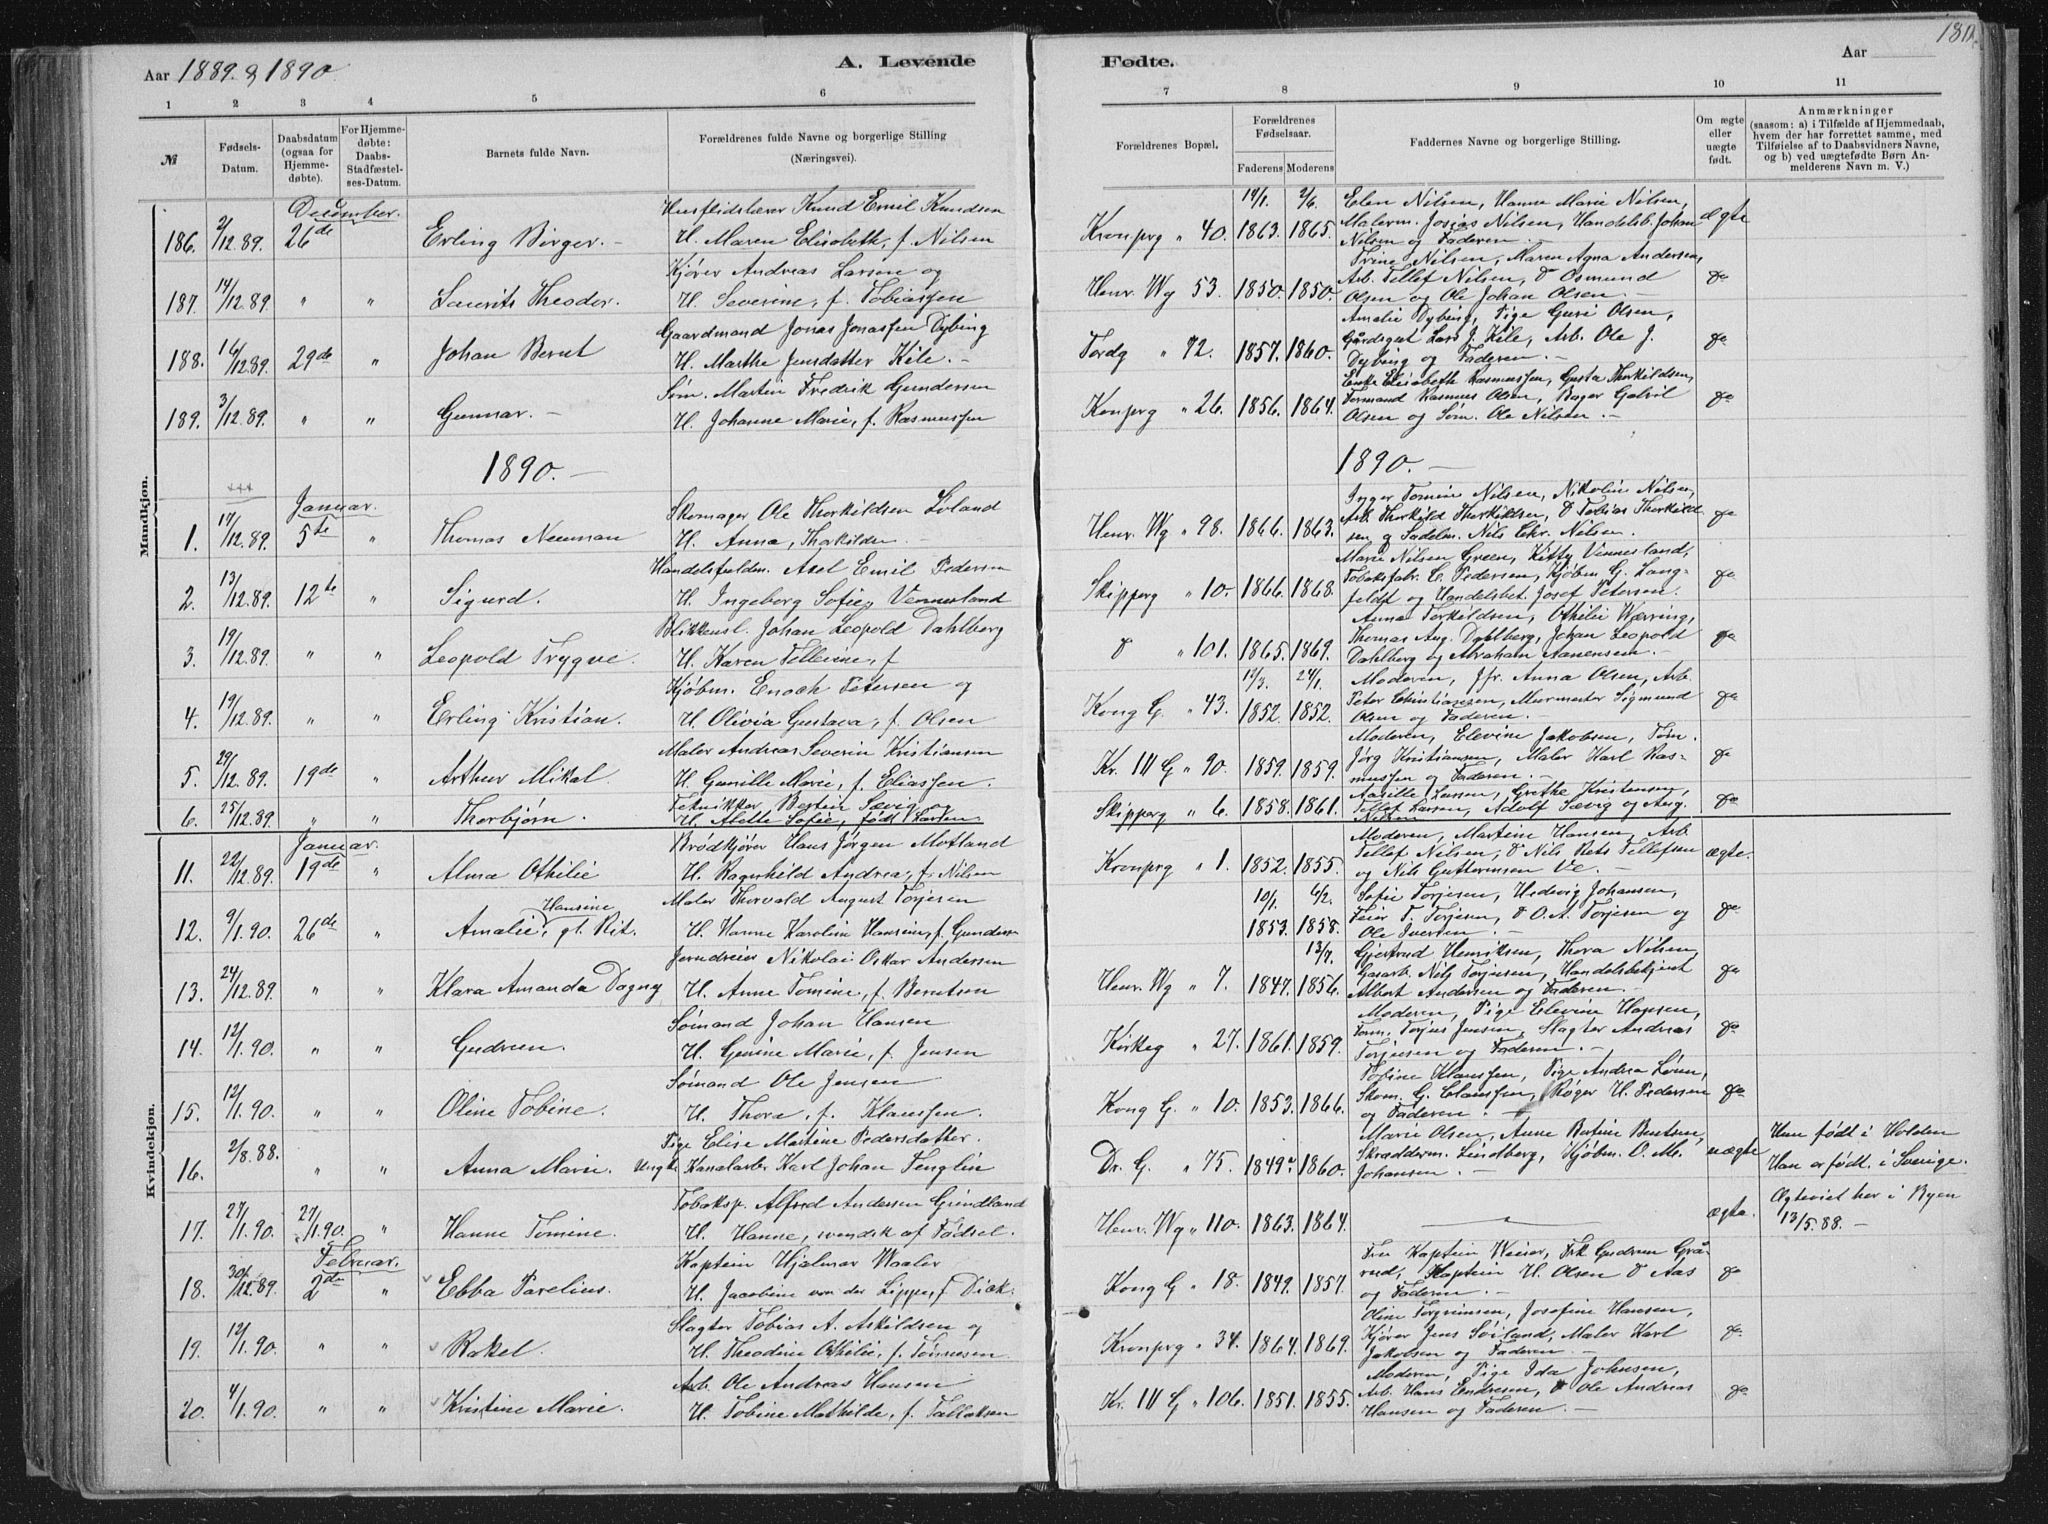 180.
Aar 1889 & 1890
A. Levende
Fødte.
Aar
1 2 3 4 5 6
7 8 9 10 11
№
Fødsels-Datum.
Daabsdatum (ogsaa for Hjemmedøbte).
For Hjemmedøbte: Daabs-Stadfæstelses-Datum.
Barnets fulde Navn.
Forældrenes fulde Navne og borgerlige Stilling (Næringsvei).
Forældrenes Bopæl.
Forældrenes Fødselsaar.
Faderens Moderens
Faddernes Navne og borgerlige Stilling.
Om ægte eller uægte født.
Anmærkninger
(saasom: a) i Tilfælde af Hjemmedaab, hvem der har forrettet samme, med Tilføielse af to Daabsvidners Navne, og b) ved uægtefødte Børn Anmelderens Navn m. V.)
Mandkjøn.
December.
186. 2/12.89. 26de Erling Birger.
Husflidslærer Knud Emil Knudsen
H. Maren Elisabeth, f. Nilsen
Kronprg " 40. 14/1. 1863. 2/6. 1865.
Elen Nilsen, Hanne Marie Nilsen,
Malerm. Josias Nilsen, Handelsb. Johan
Nilsen og Faderen. ægte
187. 14/12.89. " " Laurits Theodor.
Kjører Andreas Larsen og
H. Severine, f. Tobiassen
Henr. Wg 53. 1850. 1850.
Trine Nilsen, Maren Agna Andersen,
Arb. Tellef Nilsen, Do Osmund
Olsen og Ole Johan Olsen do
188. 16/12.89. 29de " Johan Bernt
Gaardmand Jonas Jonassen Dybing
H. Marthe Jensdatter Kile.
Tordg " 72. 1857. 1860.
Amalie Dybing, Pige Guri Olsen,
Gårdsgut Lars J. Kile, Arb. Ole J.
Dybing og Faderen. do
189. 3/12.89. " " Gunnar.
Søm. Martin Fredrik Gundersen
H. Johanne Marie, f. Rasmussen
Konprg " 26. 1856. 1864.
Enke Elisabeth Rasmussen, Gusta Thorkildsen,
Formand Rasmus Olsen, Bager Gabril
Olsen og Søm. Ole Nilsen. do
1890.
1890.
Januar.
1. 17/12.89. 5te " Thomas Neuman
Skomager Ole Thorkildsen Loland
H. Anna, Thorkildsen.
Henr. Wg " 98. 1866. 1863.
Inger Tomine Nilsen, Nikoline Nilsen,
Arb. Thorkild Thorkildsen, Do Tobias Thorkildsen
og Sadelm. Nils Chr. Nilsen. do
2. 13/12.89. 12te " Sigurd.
Handelsfuldm. Axel Emil Pedersen
H. Ingeborg Sofie, Vennesland
Skipperg " 10. 1866. 1868.
Marie Nilsen Green, Kitty Vennesland,
Tobaksfabr. C. Pedersen, Kjøbm. G. Langfeldt
og Handelsbet. Josef Petersen. do
3. 19/12.89. " " Leopold Trygve.
Blikkensl. Johan Leopold Dahlberg
H. Karen Tellevine, f
Do " 101. 1865. 1869.
Anna Torkildsen, Othilie Wæring,
Thomas Aug. Dahlberg, Johan Leopold
Dahlberg og Abraham Aanensen. do
4. 19/12.89. " " Erling Kristian.
Kjøbm. Enoch Petersen og
H. Olivia Gustava, f. Olsen
Kong G. " 43. 19/3. 1852. 24/1. 1852.
Moderen, Jfr. Anna Olsen, Arb.
Peter Christiansen, Murmester Sigmund
Olsen og Faderen. do
5. 29/12.89. 19de " Arthur Mikal
Maler Andreas Severin Kristiansen
H. Gunille Marie, f. Eliassen.
Kr. IV G " 90. 1859. 1859.
Moderen, Elevine Jakobsen, Tøm.
Jörg Kristiansen, Maler Karl Rasmussen
og Faderen. do
6. 25/12.89. " " Thorbjørn.
Tekniker Bertin Sævig og
H. Alette Sofie, født Larsen
Skipperg " 6. 1858. 1861.
Aasille Larsen, Grethe Kristensen,
Tellef Larsen, Adolf Sævig og Aug.
Nilsen do
Kvindekjøn.
Januar.
11. 22/12.89. 19de " Alma Othilie
Brødkjører Hans Jörgen Motland
H. Ragnhild Andrea, f. Nilsen
Kronprg " 1. 1852. 1855.
Moderen, Martine Hansen, Arb.
Tellef Nilsen, Do Nils Bets Tellefsen
og Nils Guttormsen Ve. ægte.
12. 9/1.90. 26de " Amalie Hansine, gt. Rit.
Maler Thorvald August Torjesen
H. Hanne Karoline Hansine, f. Gunders
10/1. 1853. 6/2. 1858.
Sofie Torjesen, Hedevig Johansen,
Feier T. Torjesen, Do O. A. Torjesen og
Ole Iversen. do
13. 24/12.89. " " Klara Amanda Dagny
Jerndreier Nikolai Oskar Andersen
H. Anne Tomine, f. Berntsen
Henr. Wg " 7. 1847. 13/7. 1856.
Gjertrud Henriksen, Thora Nilsen,
Gasarb. Nils Torjesen, Handelsbetjent
Albert Andersen og Faderen. do
14. 12/1.90. " " Gudrun.
Sømand Johan Hansen
H. Gurine Marie, f. Jensen
Kirkeg " 27. 1861. 1859.
Moderen, Pige Elevine Hansen,
Tøm. Torjus Jensen, Slagter Andreas
Torjusen og Faderen. do
15. 12/1.90. " " Oline Tobine.
Sømand Ole Jensen
H. Thora, f. Klaussen.
Kong G. " 10. 1853. 1866.
Tobine Klaussen, Pige Andrea Lønn,
Skom. G. Claussen, Røger H. Pedersen
og Faderen. do
16. 2/8.88. " " Anna Marie.
Pige Elise Martine Pedersdatter.
Ungk. Kanalarb. Karl Johan Fenglin
Dr. G. " 75. 1849. 1860.
Marie Olsen, Anne Bertine Bentsen,
Skrædderm. Lindberg, Kjøbm. O. M.
Johansen. uægte
Hun født i Holden
Han er født i Sverige.
17. 27/1.90. 27/1.90. " Hanne Tomine.
Tobaksp. Alfred Andersen Grindland
H. Hanne, svensk af Fødsel.
Henr. Wg " 110. 1863. 1864. ægte.
Ægteviet her i Byen
13/5.88.
Februar.
18. 30/12.89. 2den " Ebba Parelius.
Kaptein Hjalmar Waaler
H. Jacobine von der Lippe, f Dick.
Kong G " 18. 1849. 1857.
Fru Kaptein Weier, Frk Gudrun Grårud,
Kaptein H. Olsen Do Aas
og Faderen. do
19. 12/1.90. " " Rakel.
Slagter Tobias A. Askildsen og
H. Theodine Othilie, f. Tønnesen.
Kronprg " 34. 1864. 1869.
Oline Torgrimsen, Josefine Hansen,
Kjører Jens Søiland, Maler Karl
Jakobsen og Faderen. do
20. 4/1.90. " " Kristine Marie.
Arb. Ole Andreas Hansen
H. Tobine Mathilde, f. Tallaksen
Kr. IV G " 106. 1851. 1855.
Moderen, Pige Ida Johnsen,
Arb. Hans Endresen, Do Ole Andreas
Hansen og Faderen. do